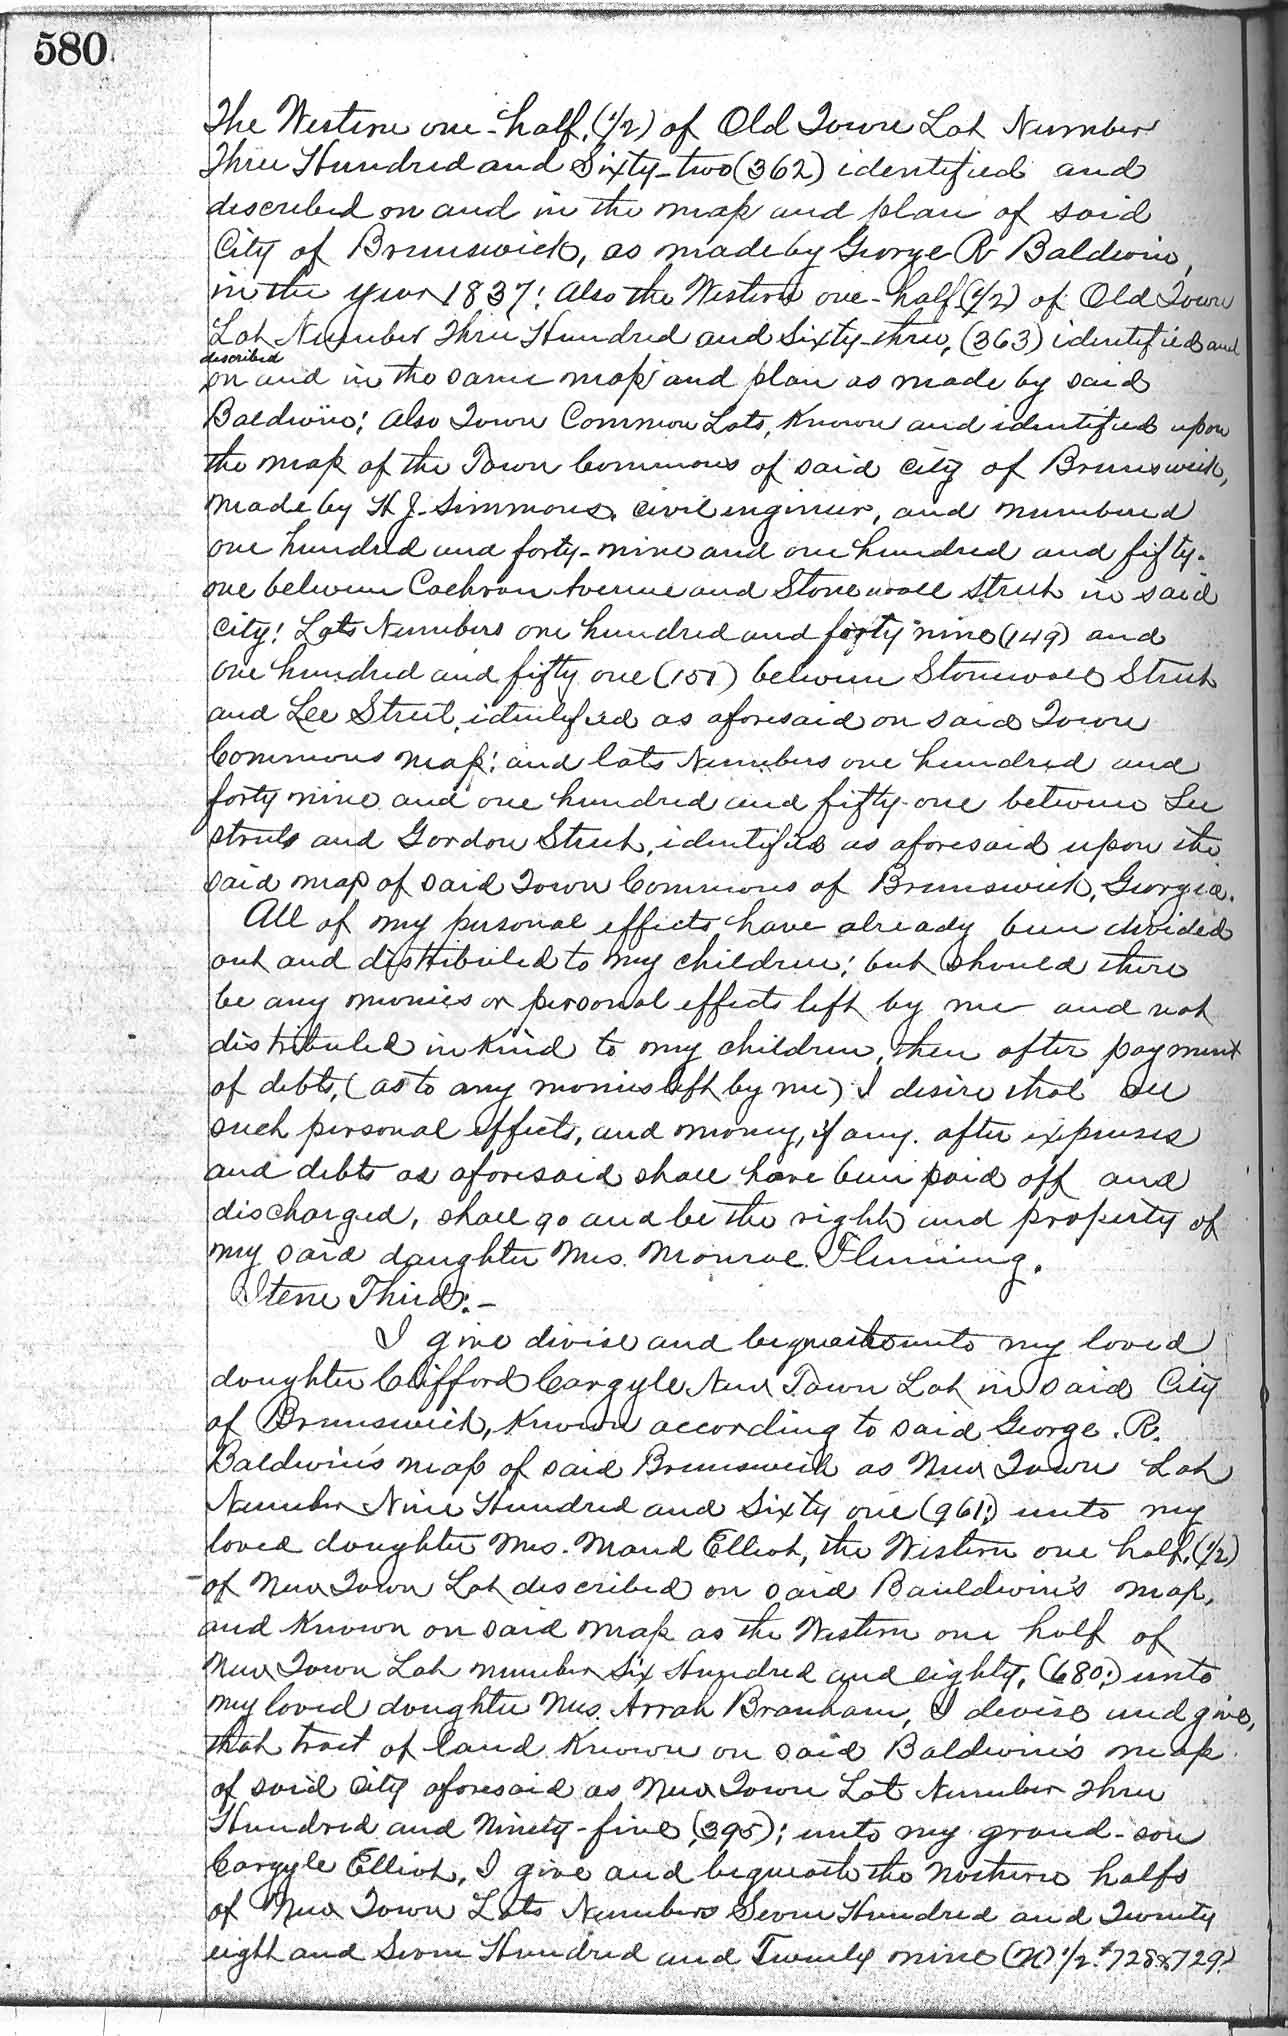 580
The Western one-half, (1/2) of Old Town Lot Number
Three Hundred and Sixty-two (362) identified and
described on and in the map and plan of said
City of Brunswick, as made by George R Baldwin,
in the year 1837; also the Western one-half (1/2) of Old Town
Lot Number Three Hundred and Sixty-three, (363) identified and
described
on and in the same map and plan as made by said
Baldwin; also Town Common Lots, Known and identified upon
the map of the Town Commons of said city of Brunswick,
made by H J. Simmons, civil engineer, and numbered
one hundred and forty-nine and one hundred and fifty-
one between Cochran Avenue and Stonewall Street in said
City; Lots Numbers one hundred and forty nine (149) and
one hundred and fifty one (151) between Stonewall Street
and Lee Street, identified as aforesaid on said Town
Commons map; and lots Numbers one hundred and
forty nine and one hundred and fifty-one between Lee
streets and Gordon Street, identified as aforesaid upon the
said map of said Town Commons of Brunswick, Georgia.
All of my personal effects have already been divided
out and distributed to my children; but should there
be any monies or personal effects left by me and not
distributed in kind to my children, then after payment
of debts, (as to any monies left by me) I desire that all
such personal effects, and money, if any. after expenses
and debts as aforesaid shall have been paid off and
discharged, shall go and be the right and property of
my said daughter Mrs. Monroe Fleming.
Item Third:-
I give divise and bequeath unto my loved
daughter Clifford Cargyle New Town Lot in said City
of Brunswick, Known according to said George. R.
Baldwin's map of said Brunswick as New Town Lot
Number Nine Hundred and Sixty one (961;) unto my
loved daughter Mrs. Maud Elliot, the Western one half, (1/2)
of New Town Lot described on said Bauldwin's map,
and Known on said map as the Western one half of
New Town Lot number Six Hundred and eighty, (680;) unto
my loved daughter Mrs. Arrah Branham, I devise and give,
that tract of land Known on said Baldwin's map
of said City aforesaid as New Town Lot Number Three
Hundred and Ninety-five (395); unto my grand-son
Cargyle Elliot, I give and bequeath the Northern halfs
of New Town Lots Numbers Seven Hundred and Twenty
eight and Seven Hundred and Twenty nine (N) 1/2 # 728 & 729.)